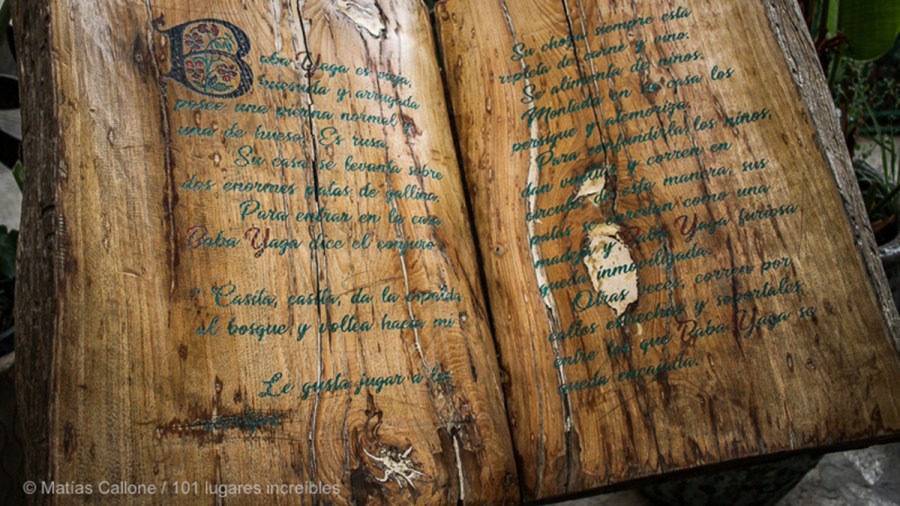 Baba Yaga es vieja,
huesuda y arrugada
posee una pierna normal y
una de hueso. Es rusa.
Su casa se levanta sobre
dos enormes patas de gallina.
Para entrar en la casa
Baba Yaga dice el conjuro:
" Casita, casita, da la espalda
al bosque y voltea hacia mí
Le gusta jugar a los
Su choza siempre está
repleta de carne y vino.
Se alimenta de niños.
Montada en la casa los
persigue y atemoriza.
Para confundirla, los niños,
dan vueltas y corren en
círculo de esta manera, sus
patas se enredan como una
madeja y Baba Yaga furiosa
queda inmovilizada.
Otras veces, corren por
calles estrechas y soportales
entre los que Baba Yaga se
queda encajada.
© Matías Callone / 101 lugares increibles